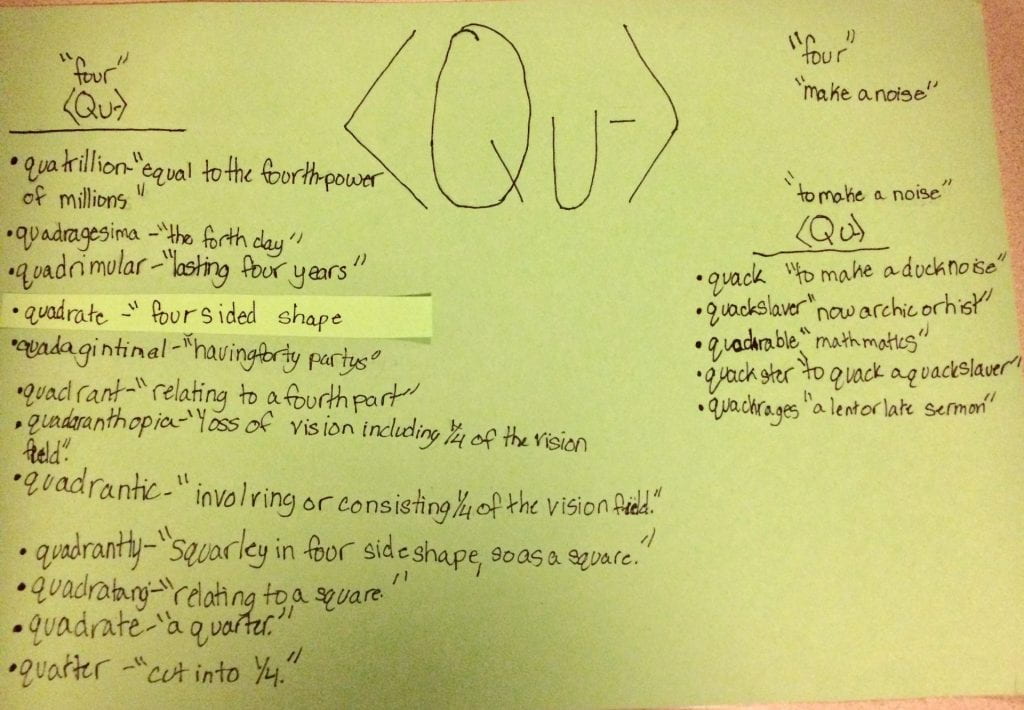 "four"
<Qu->
• quatrillion-"equal to the fourth power
of millions"
• quadragesima -"the forth day"
• quadrimular -"lasting four years"
• quadrate -" four sided shape
• quadagintimal -"having forty partys"
• quadrant-" relating to a fourth part"
• quadaranthopia-"loss of vision including 1/4 of the vision
field."
• quadrantic-" involving or consisting 1/4 of the vision field."
• quadrantly-"Squarley in four side shape, so as a square."
• quadratang-"relating to a square."
• quadrate-"a quarter."
• quarter -"cut into 1/4."
<Qu->
"four"
"make a noise"
"to make a noise"
<Qu>
• quack "to make a duck noise"
• quackslaver "now archic or hist"
• quadrable "mathmatics"
• quackster "to quack a quackslaver"
• quackrages "a lent or late sermon"